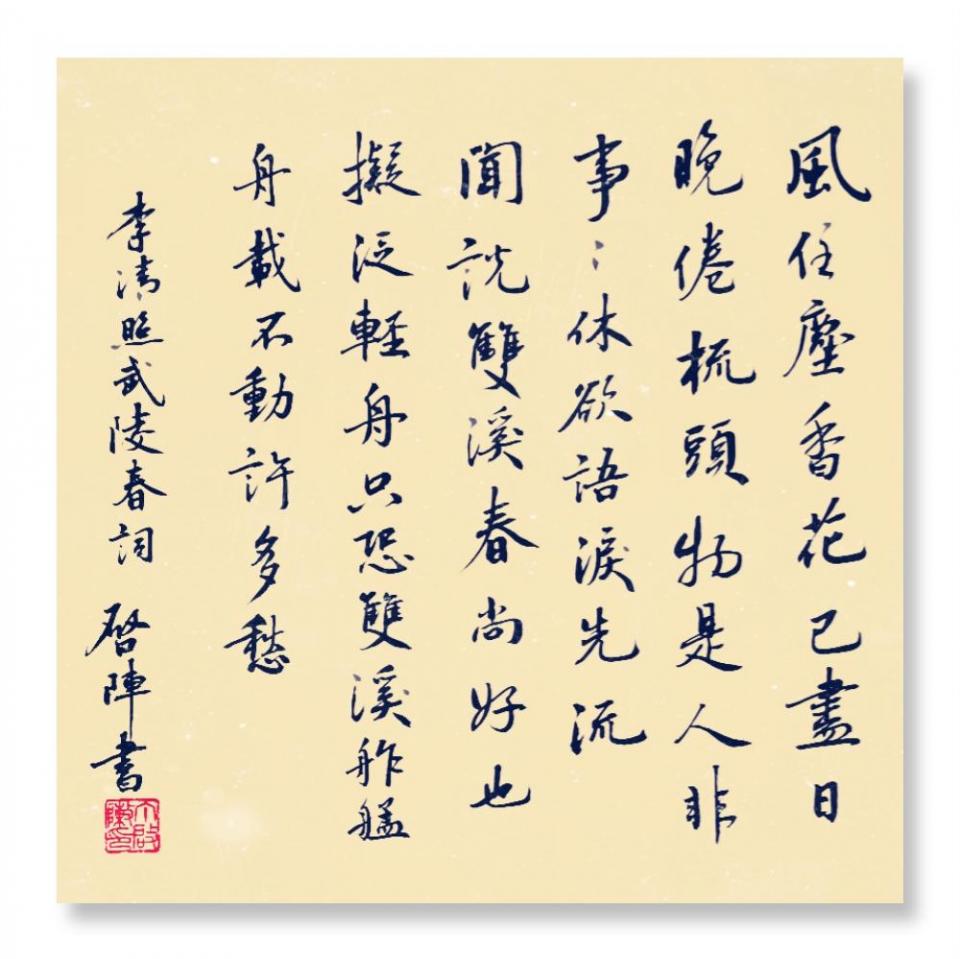 風住塵香花已盡日
晚倦梳頭物是人非
事〻休欲語淚先流
聞說雙溪春尚好也
擬泛輕舟只恐雙溪舴艋
舟載不動許多愁
李清照武陵春詞 啓陣書